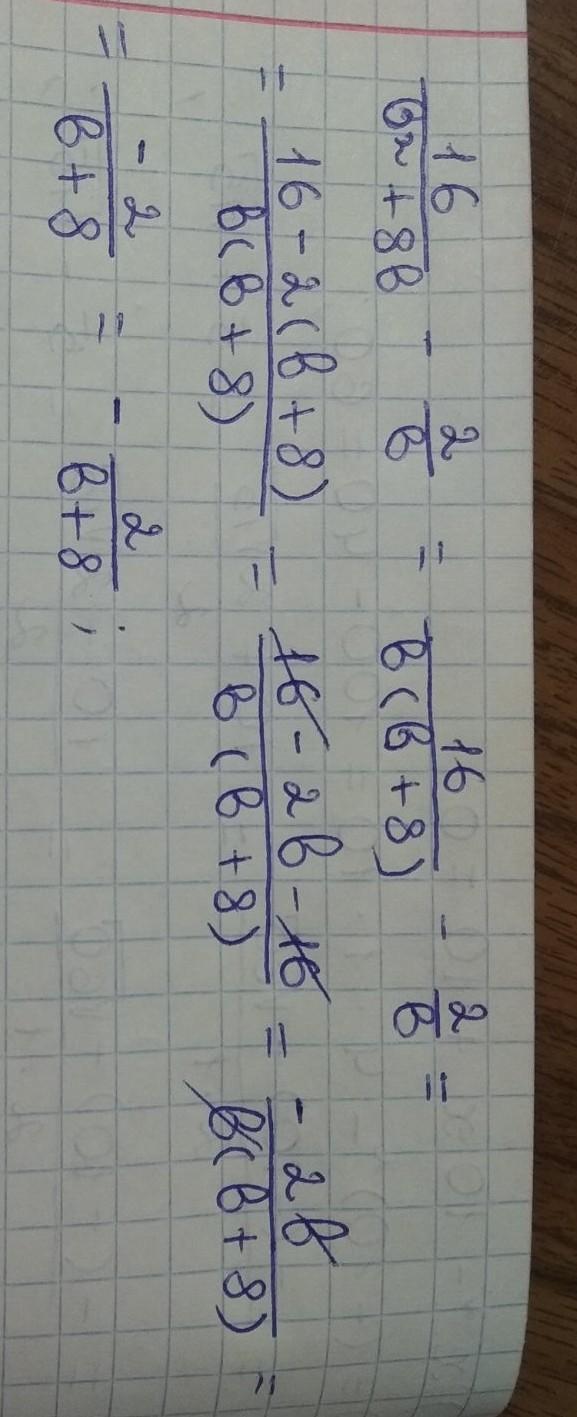 16/(b² + 8b) - 2/b = 16/(b(b + 8)) - 2/b =
= (16 - 2(b + 8))/(b(b + 8)) = (16 - 2b - 16)/(b(b + 8)) = - 2b/(b(b + 8)) =
= (-2)/(b + 8) = - 2/(b + 8);